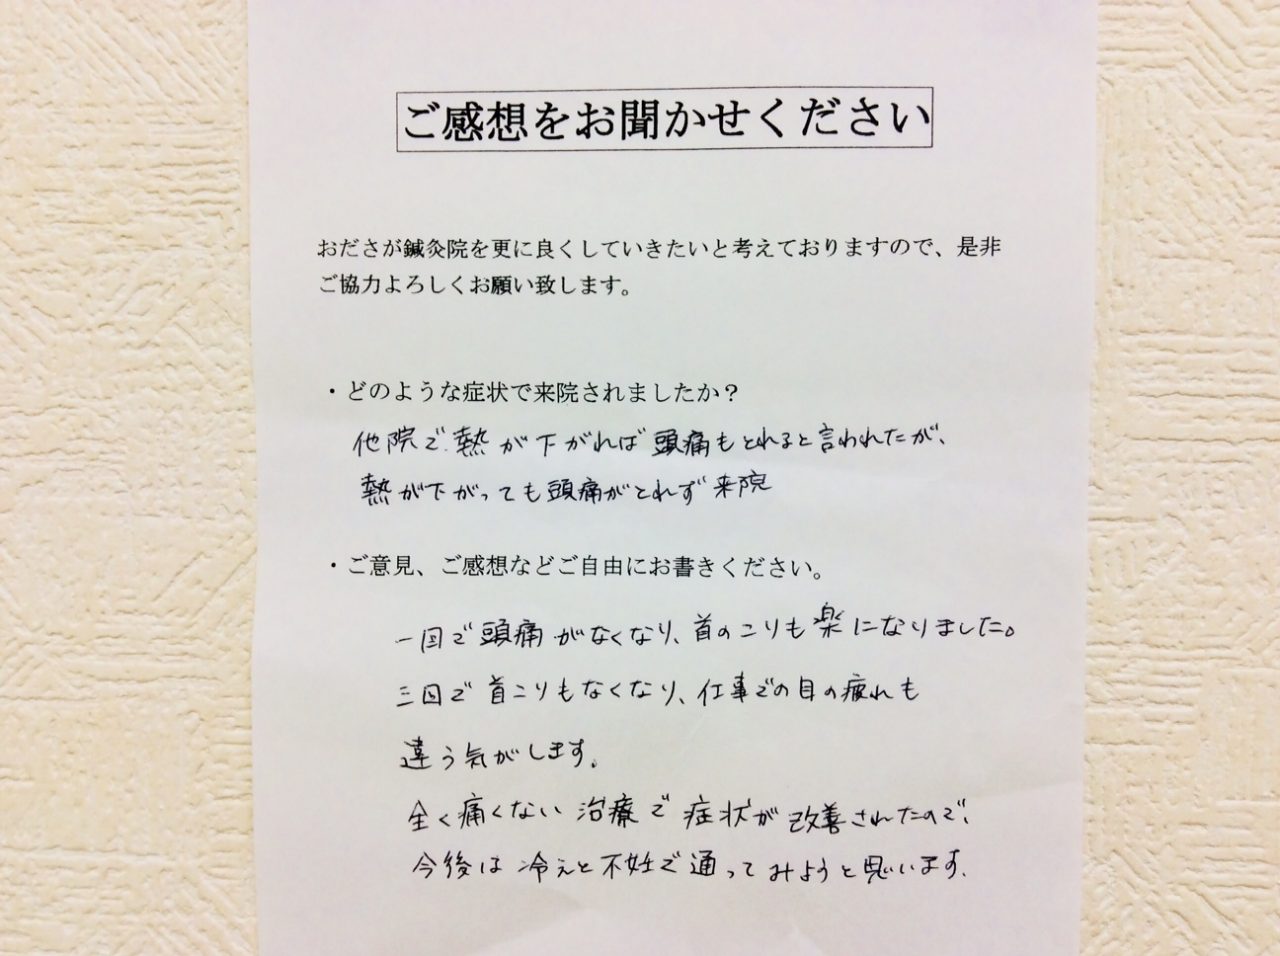 ご感想をお聞かせください
おださが鍼灸院を更に良くしていきたいと考えておりますので、是非
ご協力よろしくお願い致します。
・どのような症状で来院されましたか？
他院で熱が下がれば頭痛もとれると言われたが、
熱が下がっても頭痛がとれず来院
・ご意見、ご感想などご自由にお書きください。
一回で頭痛がなくなり、首のこりも楽になりました。
三回で首こりもなくなり、仕事での目の疲れも
違う気がします。
全く痛くない治療で症状が改善されたので、
今後は冷えと不妊で通ってみようと思います。